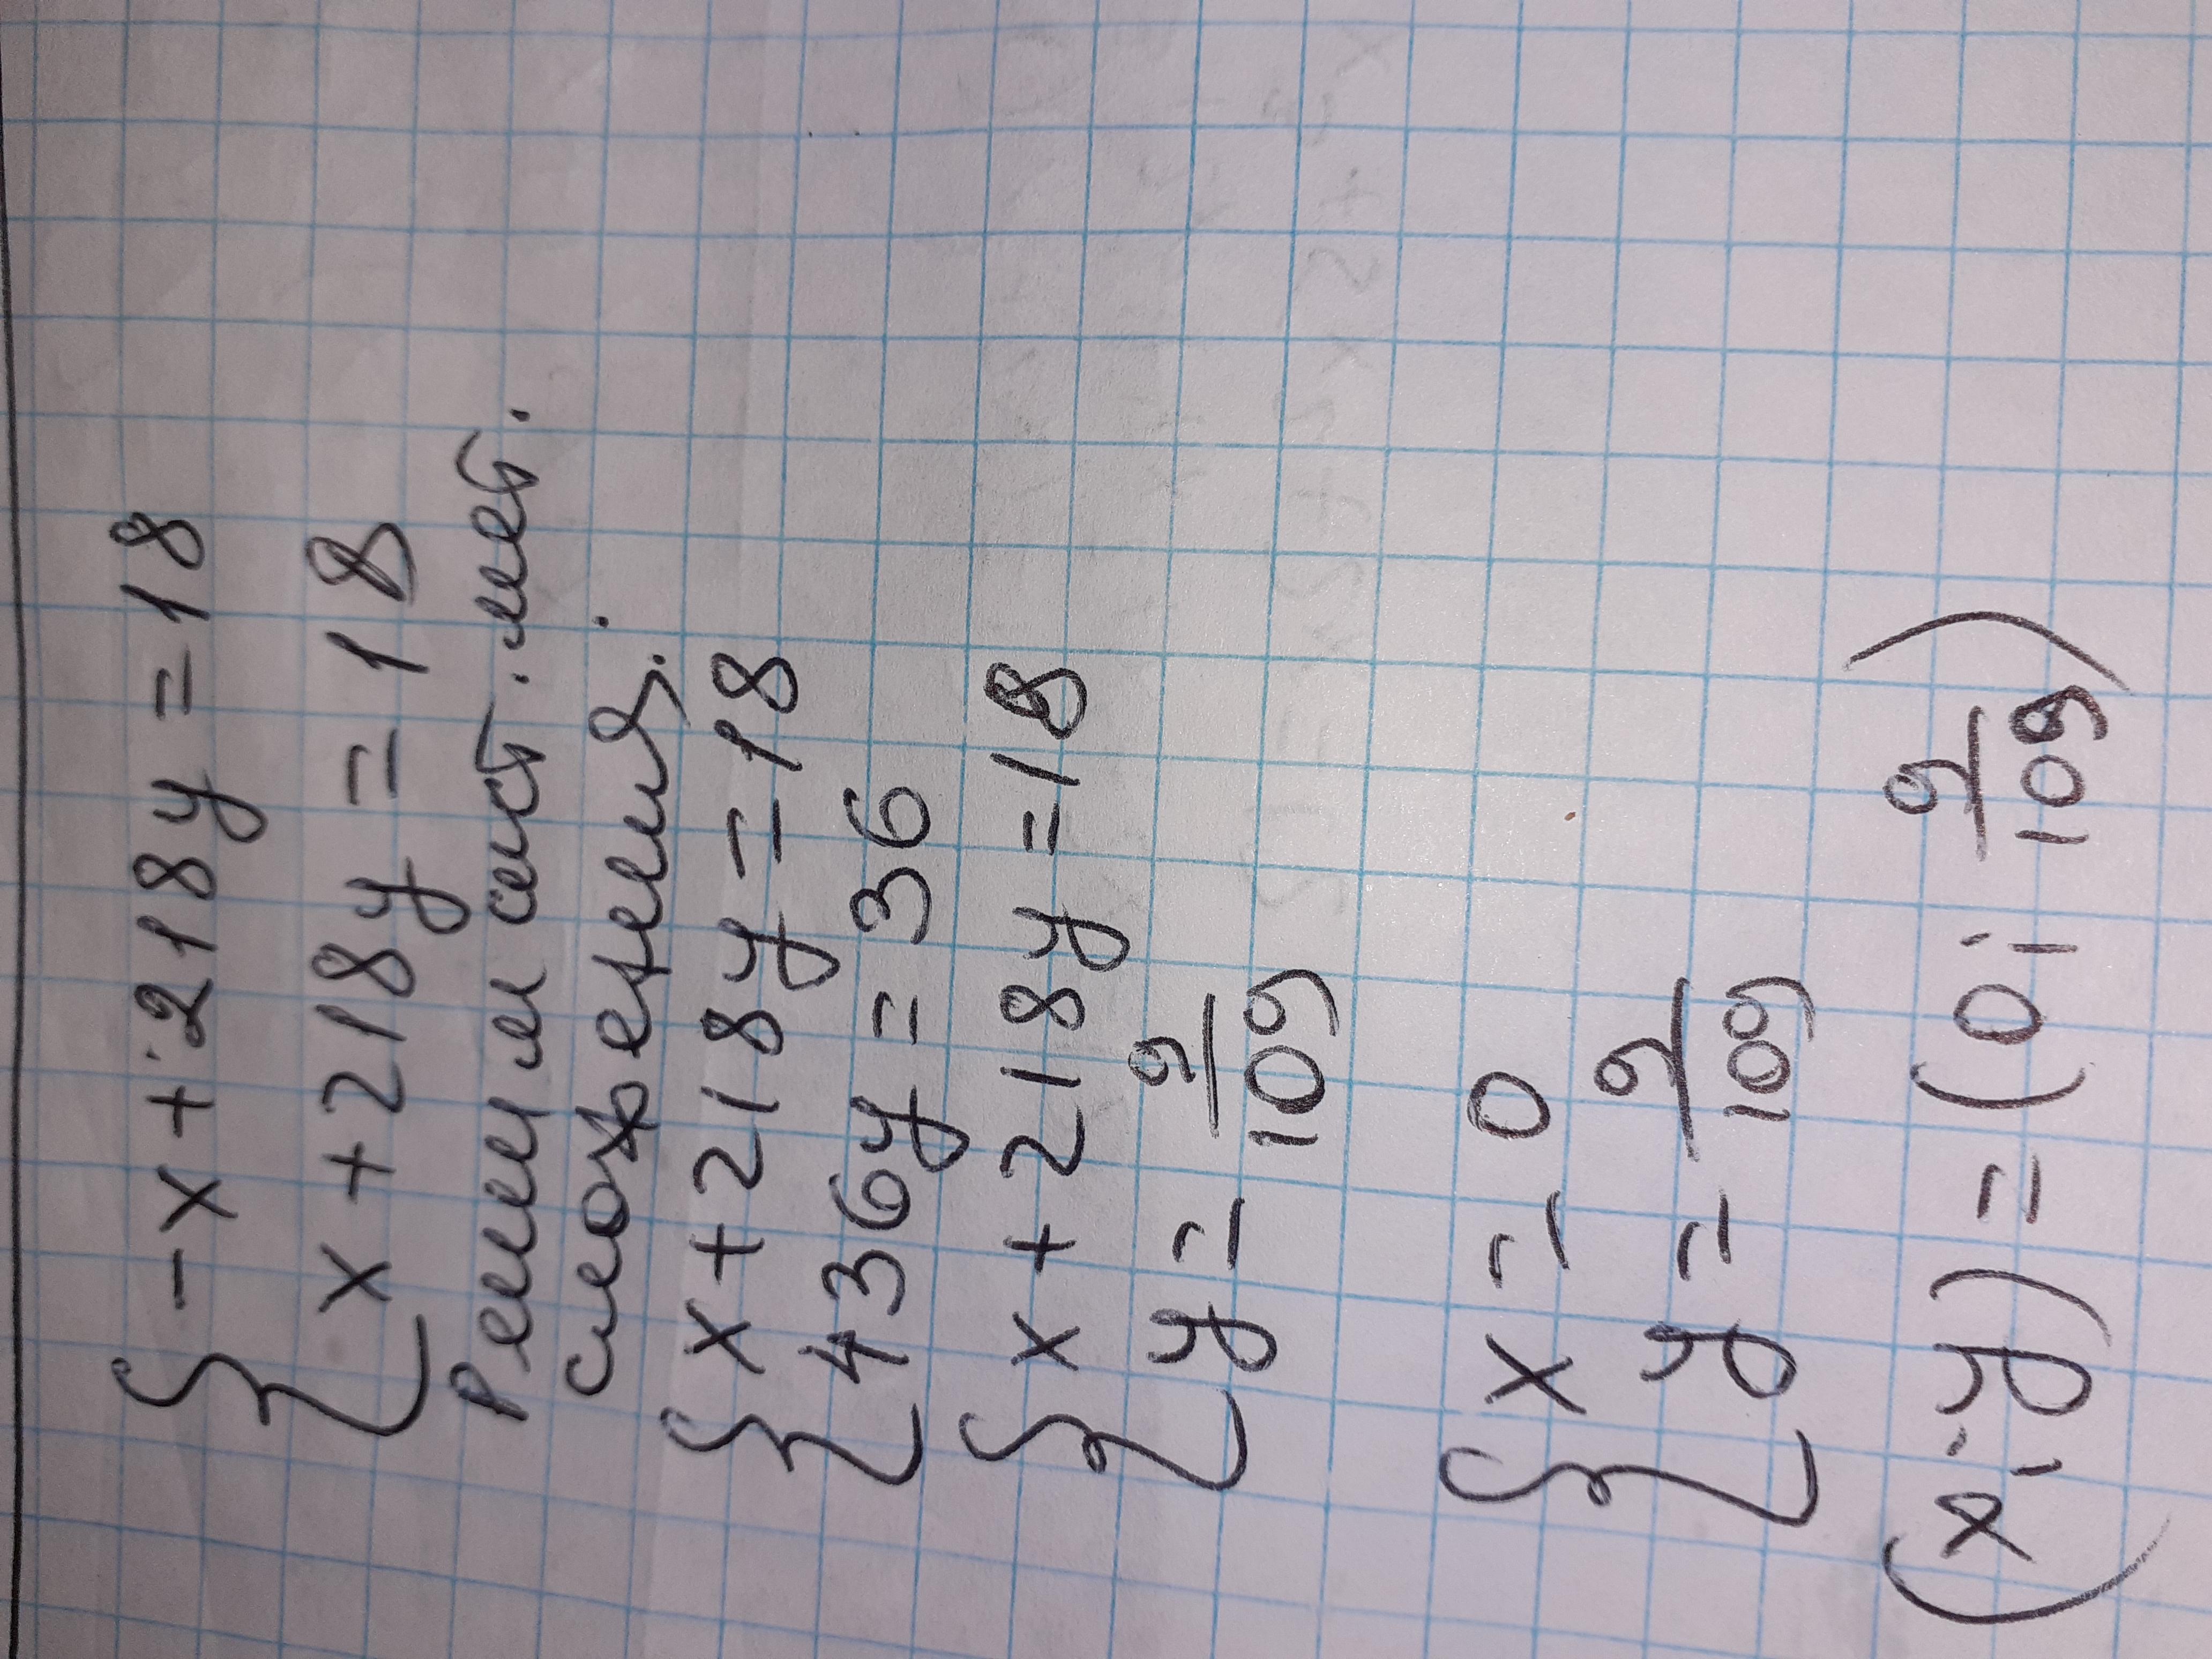 { -x + 218y = 18
x + 218y = 18
Решим сист. мет.
сложения.
{ x + 218y = 18
436y = 36
{ x + 218y = 18
y = 9/109
{ x = 0
y = 9/109
(x; y) = (0; 9/109)